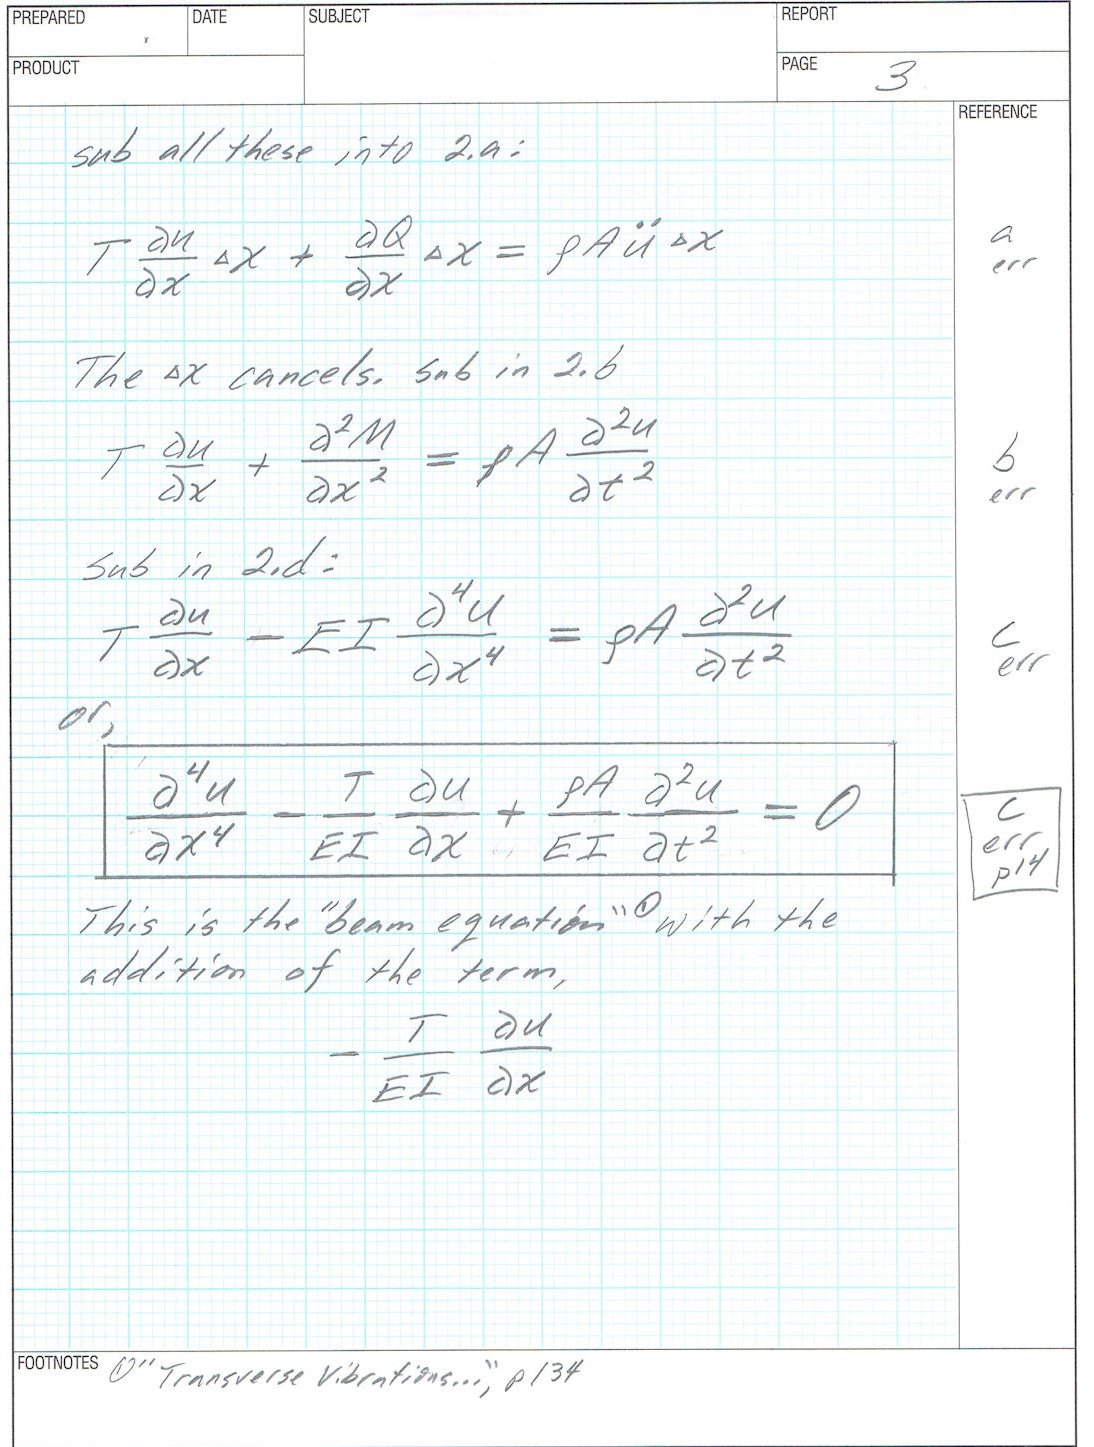 PREPARED DATE SUBJECT REPORT
PRODUCT PAGE 3
REFERENCE
sub all these into 2.a:
T ∂u/∂x Δx + ∂Q/∂x Δx = ρAü Δx a err
The Δx cancels. Sub in 2.b
T ∂u/∂x + ∂²M/∂x² = ρA ∂²u/∂t² b err
Sub in 2.d:
T ∂u/∂x - EI ∂⁴u/∂x⁴ = ρA ∂²u/∂t² c err
or,
∂⁴u/∂x⁴ - T/EI ∂u/∂x + ρA/EI ∂²u/∂t² = 0 c err p14
This is the "beam equation" ① with the
addition of the term,
- T/EI ∂u/∂x
FOOTNOTES ①"Transverse Vibrations...", p134